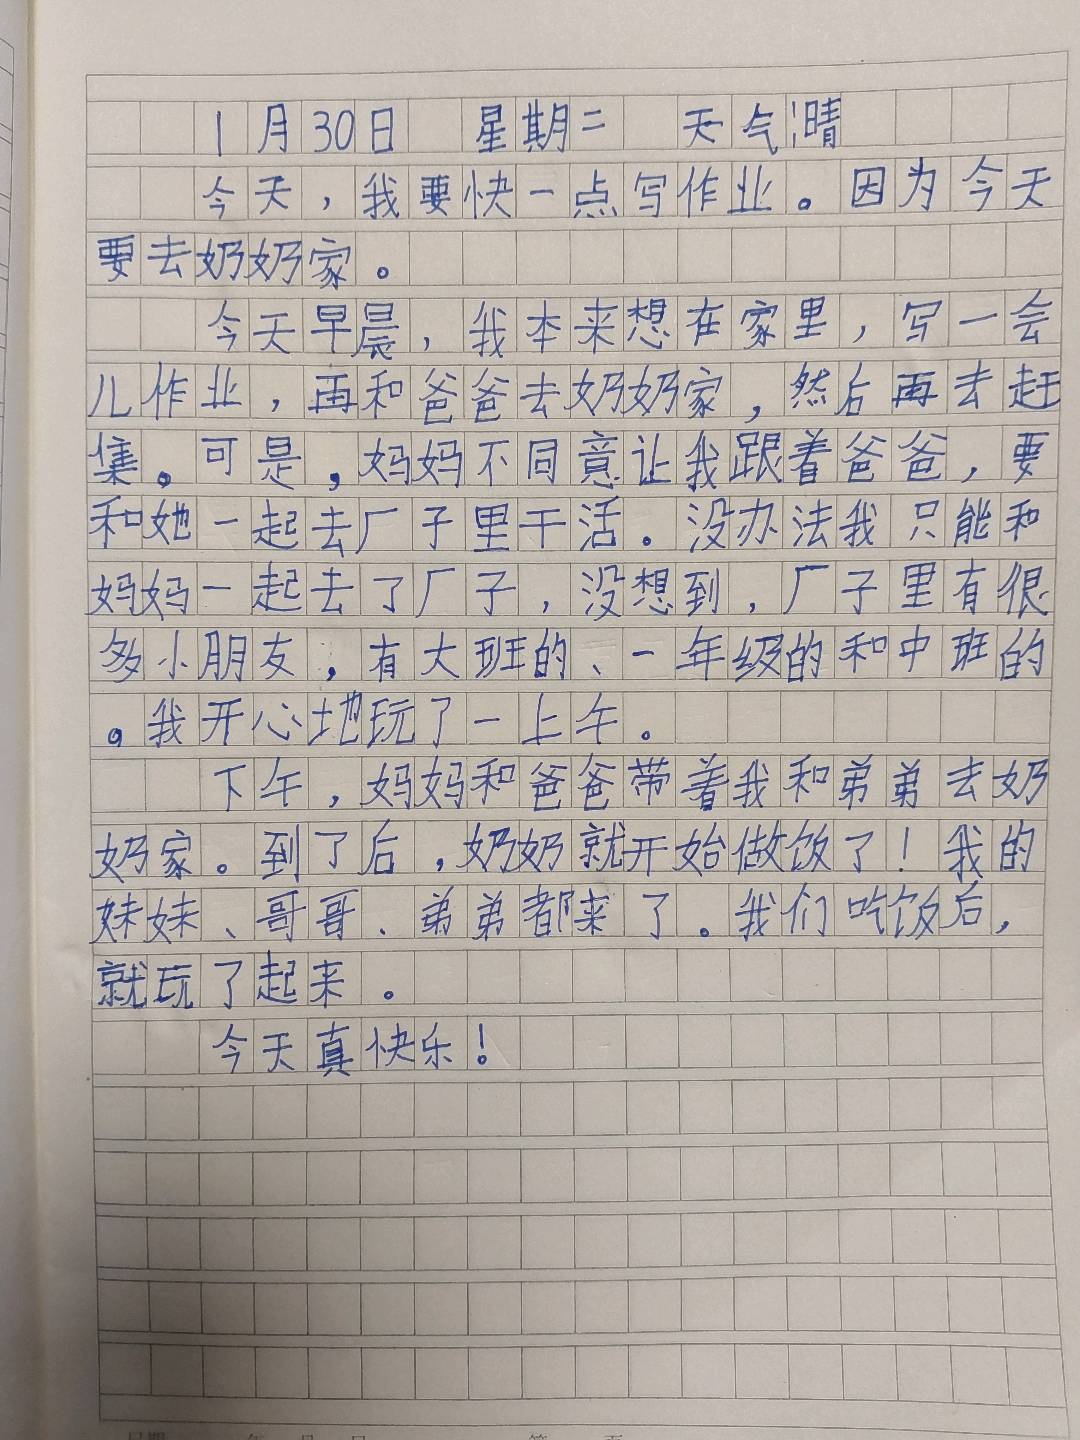 1月30日 星期二 天气晴
今天，我要快一点写作业。因为今天
要去奶奶家。
今天早晨，我本来想在家里，写一会
儿作业，再和爸爸去奶奶家，然后再去赶
集。可是，妈妈不同意让我跟着爸爸，要
和她一起去厂子里干活。没办法我只能和
妈妈一起去了厂子，没想到，厂子里有很
多小朋友，有大班的、一年级的和中班的
。我开心地玩了一上午。
下午，妈妈和爸爸带着我和弟弟去奶
奶家。到了后，奶奶就开始做饭了！我的
妹妹、哥哥、弟弟都来了。我们吃饭后，
就玩了起来。
今天真快乐！